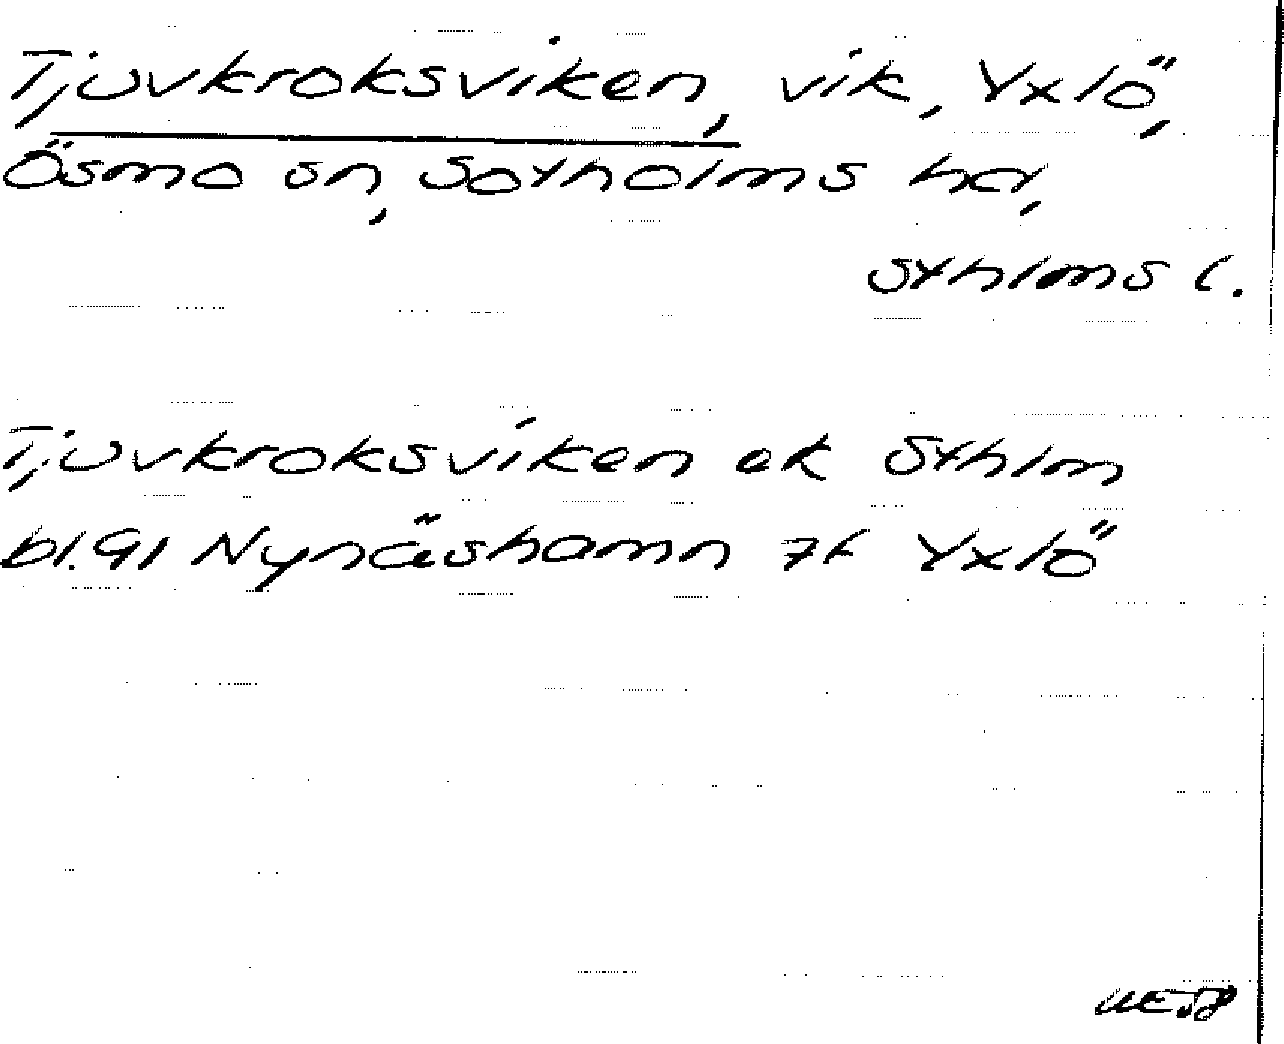 Tjuvkroksviken, vik, Yxlö,
Ösmo sn, Sotholms hd,
Sthlms l.
Tjuvkroksviken ek Sthlm
bl. 91 Nynäshamn 7f Yxlö